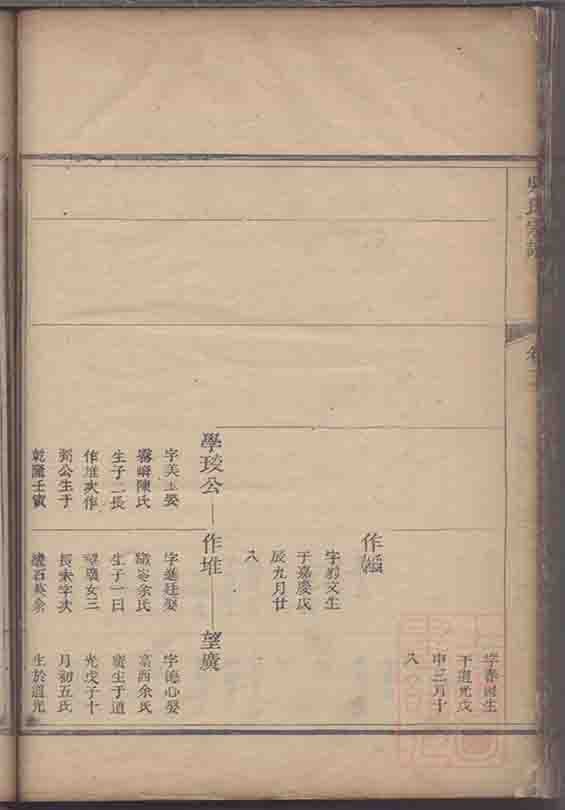 吳氏宗譜
卷三
字春圃生
于道光戊
申三月十
八
作
字
文生
于嘉慶戊
辰九月廿
八
學琰公
作堆
望廣
字美玉娶
陳氏
生子二長
作堆次作
公生于
乾隆壬寅
字
廷娶
余氏
生子一曰
望廣女三
長未字次
余
字德心娶
西余氏
廣生于道
光戊子十
月初五氏
生於道光